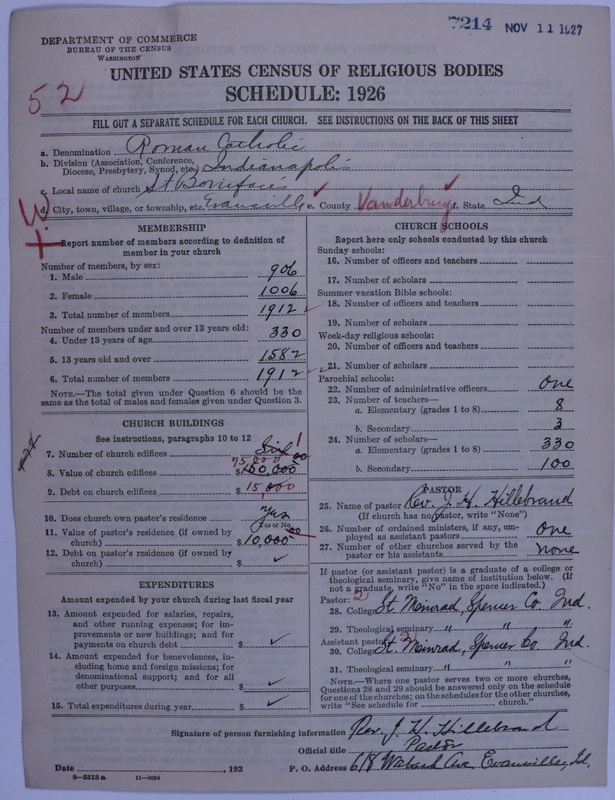 7214 NOV 11 1927
DEPARTMENT OF COMMERCE
BUREAU OF THE CENSUS
WASHINGTON
52
UNITED STATES CENSUS OF RELIGIOUS BODIES
SCHEDULE: 1926
FILL OUT A SEPARATE SCHEDULE FOR EACH CHURCH. SEE INSTRUCTIONS ON THE BACK OF THIS SHEET
a. Denomination Roman Catholic
b. Division (Association, Conference,
Diocese, Presbytery, Synod, etc.) Indianapolis
c. Local name of church St Boniface's
d. City, town, village, or township, etc. Evansville e. County Vanderburg f. State Ind
MEMBERSHIP
Report number of members according to definition of
member in your church
Number of members, by sex:
1. Male 906
2. Female 1006
3. Total number of members 1912
Number of members under and over 13 years old:
4. Under 13 years of age 330
5. 13 years old and over 1582
6. Total number of members 1912
NOTE.—The total given under Question 6 should be
same as the total of males and females given under Question 3.
CHURCH BUILDINGS
See instructions, paragraphs 10 to 12
7. Number of church edifices Six 1
75,000 00
8. Value of church edifices $150,000
9. Debt on church edifices $15,000
10. Does church own pastor's residence Yes
(Yes or No)
11. Value of pastor's residence (if owned by
church) $10,000 00
12. Debt on pastor's residence (if owned by
church) $ ✓
EXPENDITURES
Amount expended by your church during last fiscal year
13. Amount expended for salaries, repairs,
and other running expenses; for im-
provements or new buildings; and for
payments on church debt $ ✓
14. Amount expended for benevolences, in-
cluding home and foreign missions; for
denominational support; and for all
other purposes $ ✓
15. Total expenditures during year $ ✓
CHURCH SCHOOLS
Report here only schools conducted by this church
Sunday schools:
16. Number of officers and teachers
17. Number of scholars
Summer vacation Bible schools:
18. Number of officers and teachers
19. Number of scholars
Week-day religious schools:
20. Number of officers and teachers
21. Number of scholars
Parochial schools:
22. Number of administrative officers One
23. Number of teachers—
a. Elementary (grades 1 to 8) 8
b. Secondary 3
24. Number of scholars—
a. Elementary (grades 1 to 8) 330
b. Secondary 100
PASTOR
25. Name of pastor Rev. J. H. Hillebrand
(If church has no pastor, write "None")
26. Number of ordained ministers, if any, em-
ployed as assistant pastors One
27. Number of other churches served by the
pastor or his assistants None
If pastor (or assistant pastor) is a graduate of a college or
theological seminary, give name of institution below. (If
not a graduate, write "No" in the space indicated.)
Pastor: 2
28. College St. Meinrad, Spencer Co. Ind.
29. Theological seminary " " "
Assistant pastor:
30. College St. Meinrad, Spencer Co. Ind.
31. Theological seminary " " "
NOTE.—Where one pastor serves two or more churches,
Questions 28 and 29 should be answered only on the schedule
for one of the churches; on the schedules for the other churches,
write "See schedule for church."
Signature of person furnishing information Rev. J. H. Hillebrand
Official title Pastor
Date , 192 P. O. Address 618 Wabash Ave Evansville, Ind.
8—5518 a 11—8024